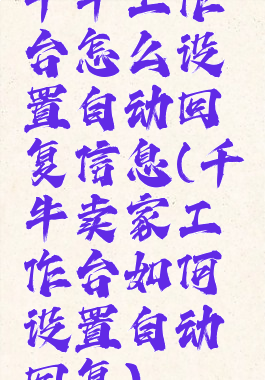 千牛工作
台怎么设
置自动回
复信息(千
牛卖家工
作台如何
设置自动
回复)